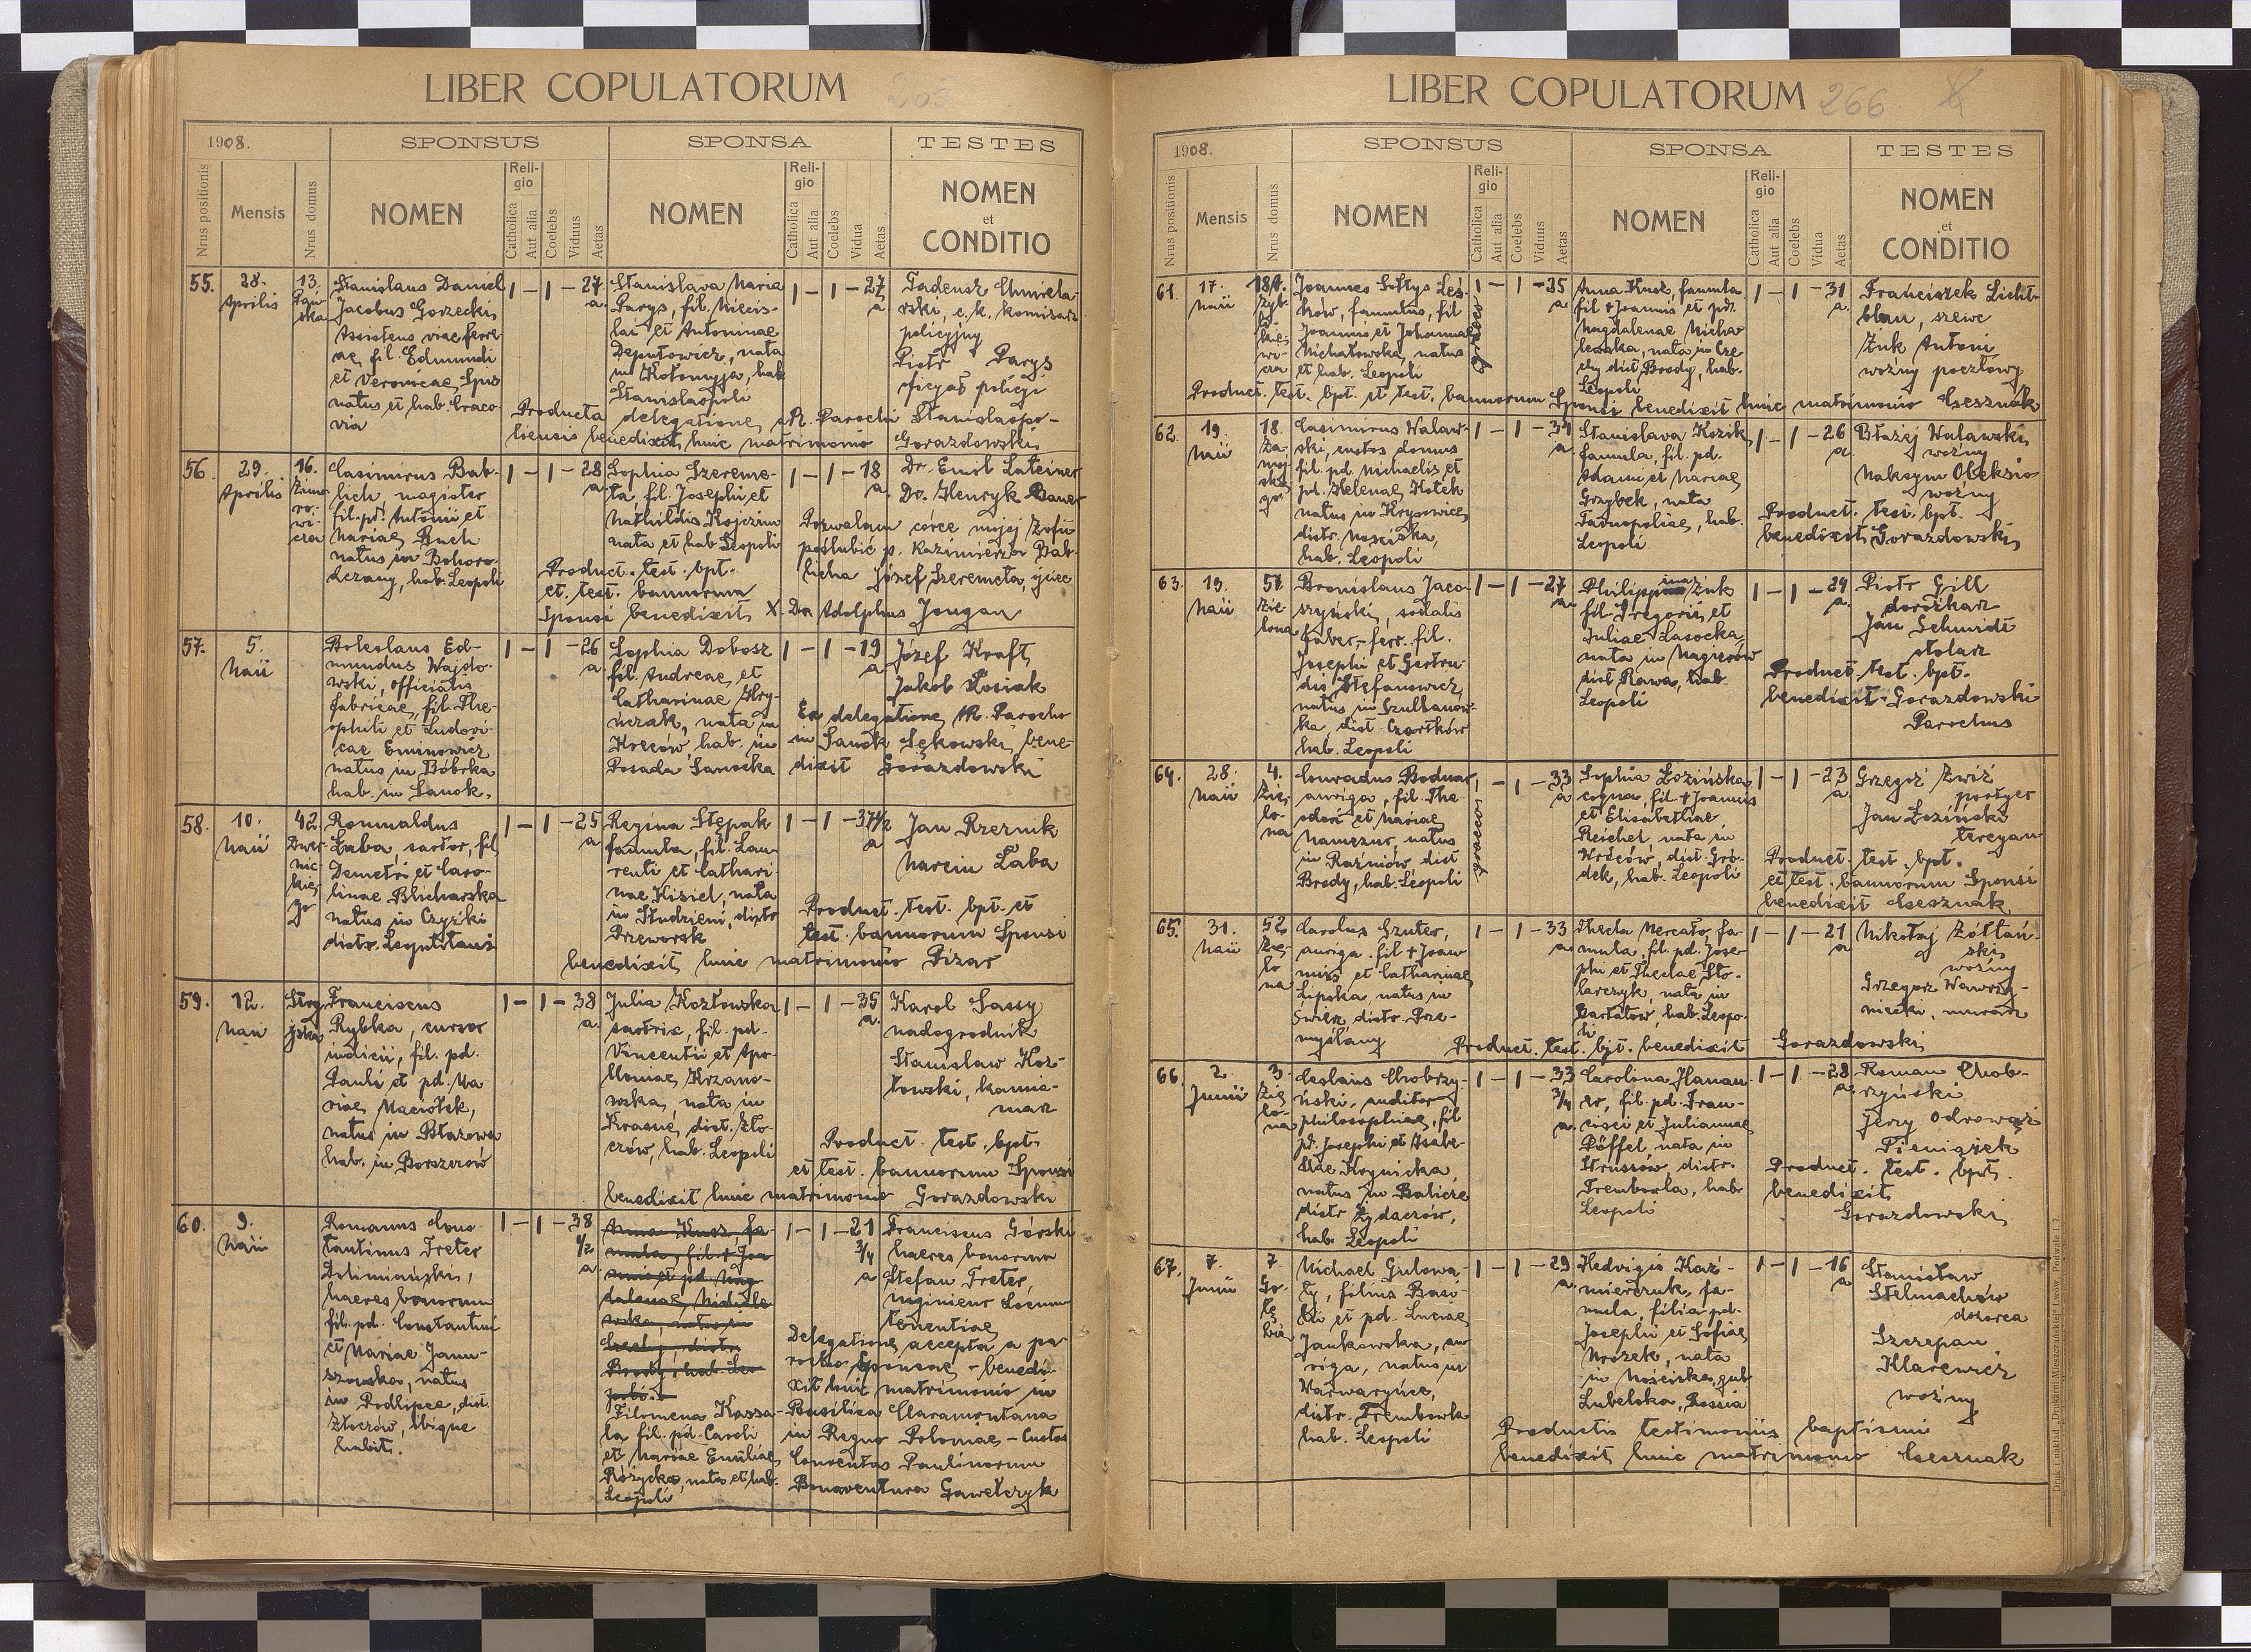 LIBER COPULATORUM
1908.
SPONSUS
SPONSA
TESTES
Nrus positionis
Mensis
Nrus domus
NOMEN
Religio
Catholica
Aut alia
Coelebs
Viduus
Aetas
NOMEN
Religio
Catholica
Aut alia
Coelebs
Vidua
Aetas
NOMEN
et
CONDITIO
55.
28.
Aprilis
13.
Stanislaus Daniel
Jacobus Gorzecki,
Assistens viae ferre
ae, fil. Edmundi
et Veronicae Spis
natus et hab. Craco-
via
1 — 1 — 27
a.
Stanislava Maria
Parys, fil. Miecis-
lai et Antoninae
Deputowicz, nata
in Kołomyja, hab
Stanislaopoli
1 — 1 — 27
a
Tadeusz Chmiela-
rski, c. k. komisarz
policyjny
Piotr Parys
Producta delegatione R. Parochi Stanislaopo-
liensis benedixit huic matrimonio Gorazdowski
56.
29.
Aprilis
16.
Zimo-
ro-
wi-
cza
Casimirus Bab-
lich, magister
fil. pd. Antonii et
Mariae Ruch
natus in Bohoro-
dczany, hab. Leopoli
1 — 1 — 28
a.
Sophia Szereme-
ta, fil. Josephi et
Mathildis Kojczim
nata et hab. Leopoli
1 — 1 — 18
a.
Dr. Emil Lateiner
Dr. Henryk Bauer
Pozwalam córce mojej Zofii
poślubić p. Kazimierza Bab-
licha Józef Szeremeta, ojciec
Product. test. bpt.
et. test. bannorum
Sponsi benedixit X. Dr. Adolphus Jougan
57.
5.
Maii
Boleslaus Ed-
mundus Wajdo-
wski, officialis
fabricae, fil. The-
ophili et Ludovi-
cae Eminowicz
natus in Bóbrka
hab. in Sanok.
1 — 1 — 26
a
Sophia Dobosz
fil. Andreae et
Catharinae Hry-
nczak, nata in
Kreców, hab. in
Posada Sanocka
1 — 1 — 19
a
Józef Kraft,
Jakób Kosiak
Ex delegatione R. Parocho
in Sanok Sękowski, bene-
dixit Gorazdowski
58.
10.
Maii
42
Dwer-
nic-
kie-
go
Romualdus
Łaba, sartor, fil
Demetri et Caro-
linae Blicharska
natus in Czyżki
distr.
1 — 1 — 25
a
Regina Stępak
famula, fil. Lau-
renti et Cathari
nae Kisiel, nata
in Studzieni, distr
Przeworsk
1 — 1 — 37 1/2
a
Jan Rzeznik
Marcin Łaba
Product. test. bpt. et
test. bannorum Sponsi
benedixit huic matrimonio Pizar
59.
12.
Maii
Stry-
jska
Franciscus
Rybka, cursor
iudicii, fil. pd.
Pauli et pd. Ma
riae Maciołek,
natus in Błażowa
hab. in Borszczów
1 — 1 — 38
a.
Julia Kozłowska
sartrix, fil. pd.
Vincentii et Apo-
lloniae Krzano-
wska, nata in
Krasne, dist. Zło-
czów, hab. Leopoli
1 — 1 — 35
a.
Karol Sassy
nadogrodnik
Stanisław Koz-
łowski, kamie-
niarz
Product. test. bpt.
et test. bannorum Sponsi
benedixit huic matrimonio Gorazdowski
60.
9.
Maii
Romanus Cons-
tantinus Treter
haeres bonorum
fil. pd. Constantini
et Mariae Janu-
szowska, natus
in Podlipce, dist.
Złoczów, ibique
habit.
1 — 1 — 38
1/2
a
Anna Kusz, fa-
mula, fil. † Joa
nnis et pd. Mag
dalenae Michale
wska, nata in
Czechy, distr.
Brody, hab. Leo
poli.
Filomena Kassa-
la fil. pd. Caroli
et Mariae Emiliae
Różycka, nata et hab.
Leopoli
1 — 1 — 21
3/4
a
Franciscus Górski
haeres bonorum
Stefan Treter,
Delegatione accepta a pa-
rocho Sponsae — benedi-
xit huic matrimonio in
Basilica Claramontana
in Regno Poloniae — Custos
Conventus Paulinorum
Bonaventura Gawełczyk
LIBER COPULATORUM
266
1908.
SPONSUS
SPONSA
TESTES
Nrus positionis
Mensis
Nrus domus
NOMEN
Religio
Catholica
Aut alia
Coelebs
Viduus
Aetas
NOMEN
Religio
Catholica
Aut alia
Coelebs
Vidua
Aetas
NOMEN
et
CONDITIO
61
17.
Maii
Joannes Sołtys Leś-
ków, famulus, fil
Joannis et Johannae
Michałowska, natus
et hab. Leopoli
1 — 1 — 35
a
Anna Kusz, famula
fil † Joannis et pd.
Magdalenae Micha
lewska, nata in Cze
chy dist, Brody, hab.
Leopoli
1 — 1 — 31
a.
Franciszek Licht-
blau, szewc
Żuk Antoni
woźny pocztowy
Product. test. bpt. et test. bannorum Sponsi benedixit huic matrimonio Csesznák
62.
19.
Maii
18.
Za-
moj-
skie
go
Casimirus Walaw-
ski, custos domus
fil. pd. Michaelis et
pd. Helenae Kotek
natus in Krysowice
distr. Mościska,
hab. Leopoli
1 — 1 — 34
a.
Stanislava Kozik
famula, fil. pd.
Adami et Mariae
Grzybek, nata
Tarnopoliae, hab.
Leopoli.
1 — 1 — 26
a.
Błażej Walawski
woźny
woźny
Product. test. bpt.
benedixit Gorazdowski
63.
19.
Maii
57.
Zie-
lona
Bronislaus Jaco-
szyński, sodalis
faber.-ferr. fil.
Josephi et Gertru-
dis Stefanowicz,
natus in Szulhanów-
ka, dist. Czortków
hab. Leopoli
1 — 1 — 27
a.
Philippina Żuk
fil. Gregorii et
Juliae Lasocka
nata in Magierów
dist. Rawa, hab.
Leopoli
1 — 1 — 24
a.
Piotr Gill
dorożkarz
Jan Schmidt
stolarz
Product. test. bpt.
benedixit. Gorazdowski
Parochus
64.
28.
Maii
4.
Zie-
lo-
na
Conradus Bodnar
auriga, fil. The-
odori et Mariae
natus
in Rażniów, dist
Brody, hab. Leopoli
1 — 33
a
Sophia Łozińska
coqua, fil. † Joannis
et Elisabethae
Reichel, nata in
dist. Gró-
dek, hab. Leopoli
1 — 1 — 23
a.
Grzegorz Zwiż
portyer
Jan Łoziński
tercyan
Product. test. bpt.
et test. bannorum Sponsi
benedixit Csesznák
65.
31.
Maii
52
Zie-
lo
na
Carolus Gzuter,
auriga. fil † Joan
nis et Catharinae
Lipska, natus in
Świrz, distr. Prze-
myślany
1 — 1 — 33
a
Thecla Mercało, fa-
mula, fil. pd. Jose-
phi et Theclae Sto-
larczyk, nata in
hab. Leopo-
li
1 — 1 — 21
a
Mikołaj Żółtań-
ski,
woźny
Grzegorz Wawrzy-
niecki, murarz
Product. test. bpt. benedixit Gorazdowski
66.
2.
Junii
3.
Zie-
lo-
na
Ceslaus Chobrzy-
ński, auditor
philosophiae, fil
pd. Josephi et Isabe-
llae Rognicka
natus in Balicze
distr Żydaczów,
hab. Leopoli
1 — 1 — 33
3/4
a.
Carolina Hanau-
er, fil. pd. Fran-
cisci et Julianae
Döffel, nata in
Strussów, distr.
Trembowla, hab.
Leopoli
1 — 1 — 28
a.
Roman Chob-
rzyński
Jerzy Odrowąż
Pieniążek
Product. test. bpt.
benedixit
Gorazdowski
67.
7.
Junii
7
Go-
łę-
bia
Michael Gulowa-
ty, filius Basi-
lii et pd. Luciae
Jankowska, au-
riga, natus in
Warwaryńce,
distr. Trembowla
hab. Leopoli
1 — 1 — 29
a.
Hedvigis Kaź-
mierczuk, fa-
mula, filia pd.
Josephi et Sofiae
Mrozek, nata
in Mościska, gub
Lubelska, Rossia
1 — 1 — 16
a
Stanisław
Stelmachów
dozorca
Szczepan
Klarewicz
woźny
Productis testimoniis baptismi
benedixit huic matrimonio Csesznák
Druk i nakład „Drukarni Mieszczańskiej”, Lwów, Podwale l. 7.